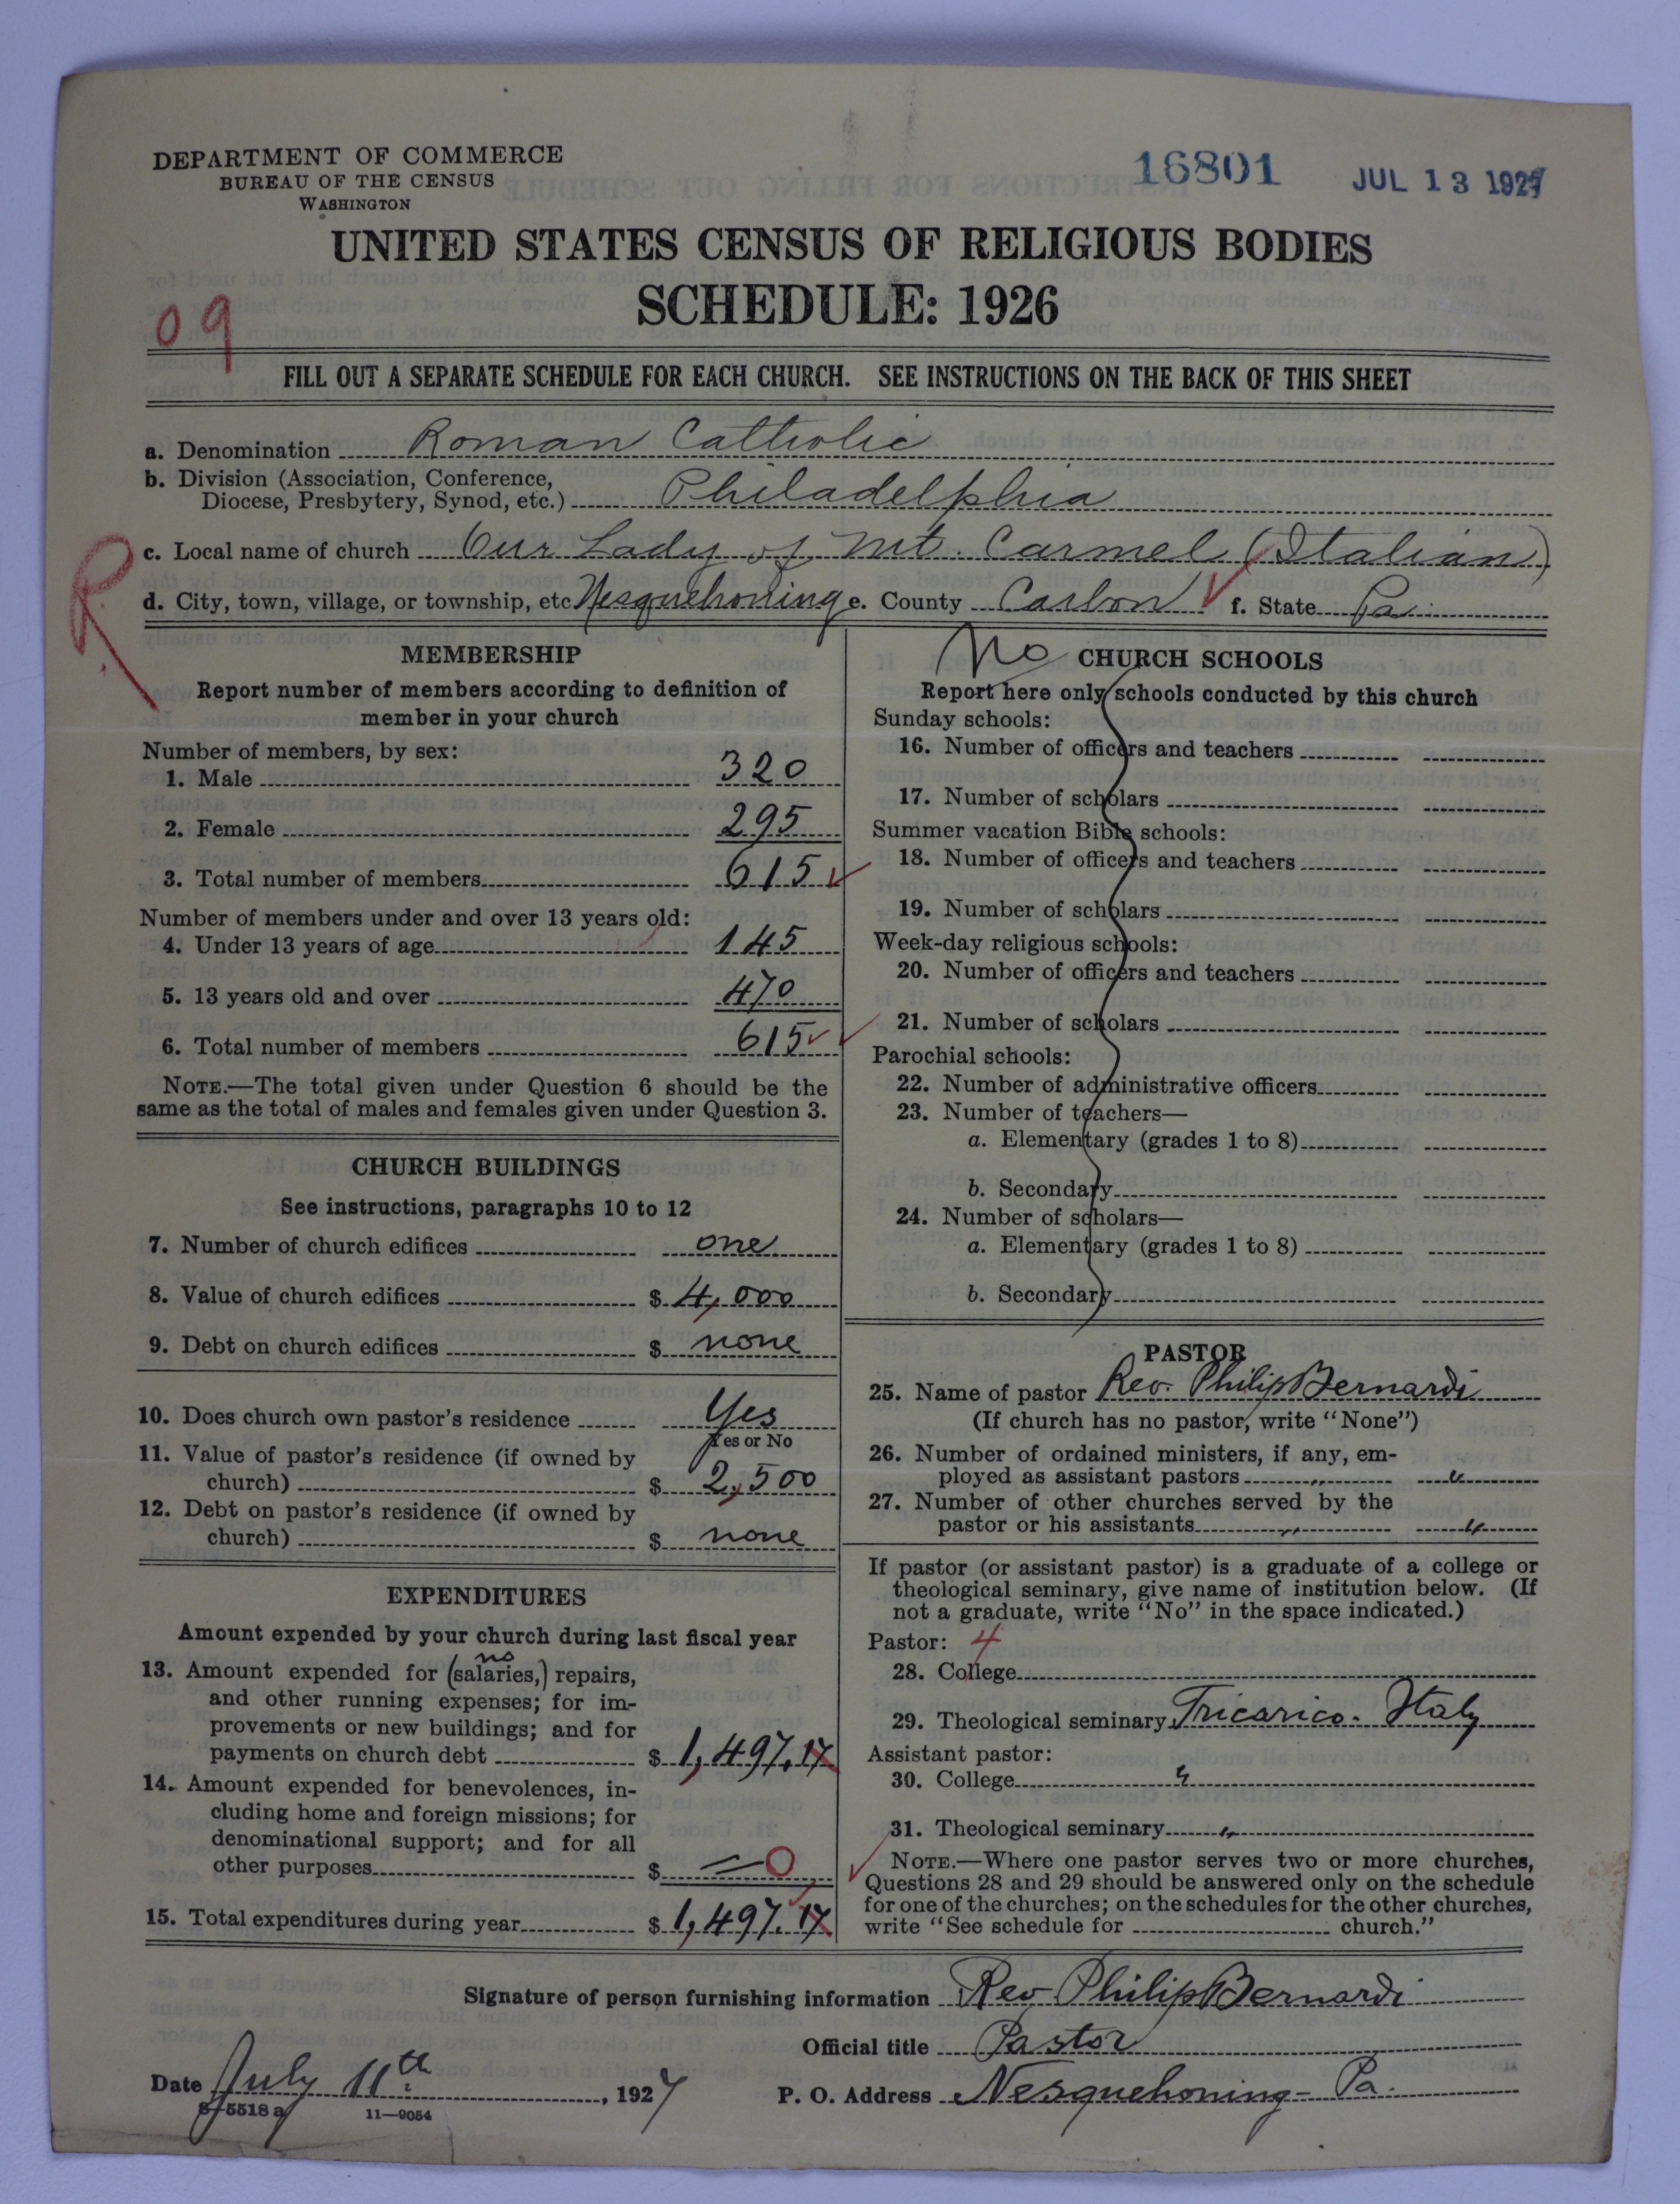 DEPARTMENT OF COMMERCE
BUREAU OF THE CENSUS
WASHINGTON
16801
JUL 13 1927
UNITED STATES CENSUS OF RELIGIOUS BODIES
SCHEDULE: 1926
09
FILL OUT A SEPARATE SCHEDULE FOR EACH CHURCH. SEE INSTRUCTIONS ON THE BACK OF THIS SHEET
a. Denomination Roman Catholic
b. Division (Association, Conference,
Diocese, Presbytery, Synod, etc.) Philadelphia
c. Local name of church Our Lady of Mt. Carmel (Italian)
R
d. City, town, village, or township, etc Nesquehoning e. County Carbon f. State Pa.
MEMBERSHIP
Report number of members according to definition of
member in your church
Number of members, by sex:
1. Male 320
2. Female 295
3. Total number of members 615
Number of members under and over 13 years old:
4. Under 13 years of age 145
5. 13 years old and over 470
6. Total number of members 615
NOTE.—The total given under Question 6 should be the
same as the total of males and females given under Question 3.
CHURCH BUILDINGS
See instructions, paragraphs 10 to 12
7. Number of church edifices one
8. Value of church edifices $ 4,000
9. Debt on church edifices $ none
10. Does church own pastor's residence Yes
Yes or No
11. Value of pastor's residence (if owned by
church) $ 2,500
12. Debt on pastor's residence (if owned by
church) $ none
EXPENDITURES
Amount expended by your church during last fiscal year
no
13. Amount expended for (salaries,) repairs,
and other running expenses; for im-
provements or new buildings; and for
payments on church debt $ 1,497.17
14. Amount expended for benevolences, in-
cluding home and foreign missions; for
denominational support; and for all
other purposes $ 0
15. Total expenditures during year $ 1,497.17
No CHURCH SCHOOLS
Report here only schools conducted by this church
Sunday schools:
16. Number of officers and teachers
17. Number of scholars
Summer vacation Bible schools:
18. Number of officers and teachers
19. Number of scholars
Week-day religious schools:
20. Number of officers and teachers
21. Number of scholars
Parochial schools:
22. Number of administrative officers
23. Number of teachers—
a. Elementary (grades 1 to 8)
b. Secondary
24. Number of scholars—
a. Elementary (grades 1 to 8)
b. Secondary
PASTOR
25. Name of pastor Rev. Philip Bernardi
(If church has no pastor, write "None")
26. Number of ordained ministers, if any, em-
ployed as assistant pastors
27. Number of other churches served by the
pastor or his assistants
If pastor (or assistant pastor) is a graduate of a college or
theological seminary, give name of institution below. (If
not a graduate, write "No" in the space indicated.)
Pastor: 4
28. College
29. Theological seminary Tricarico. Italy
Assistant pastor:
30. College
31. Theological seminary
NOTE.—Where one pastor serves two or more churches,
Questions 28 and 29 should be answered only on the schedule
for one of the churches; on the schedules for the other churches,
write "See schedule for church."
Signature of person furnishing information Rev Philip Bernardi
Official title Pastor
Date July 11th, 1927 P. O. Address Nesquehoning- Pa.
8-5518 a 11—9054